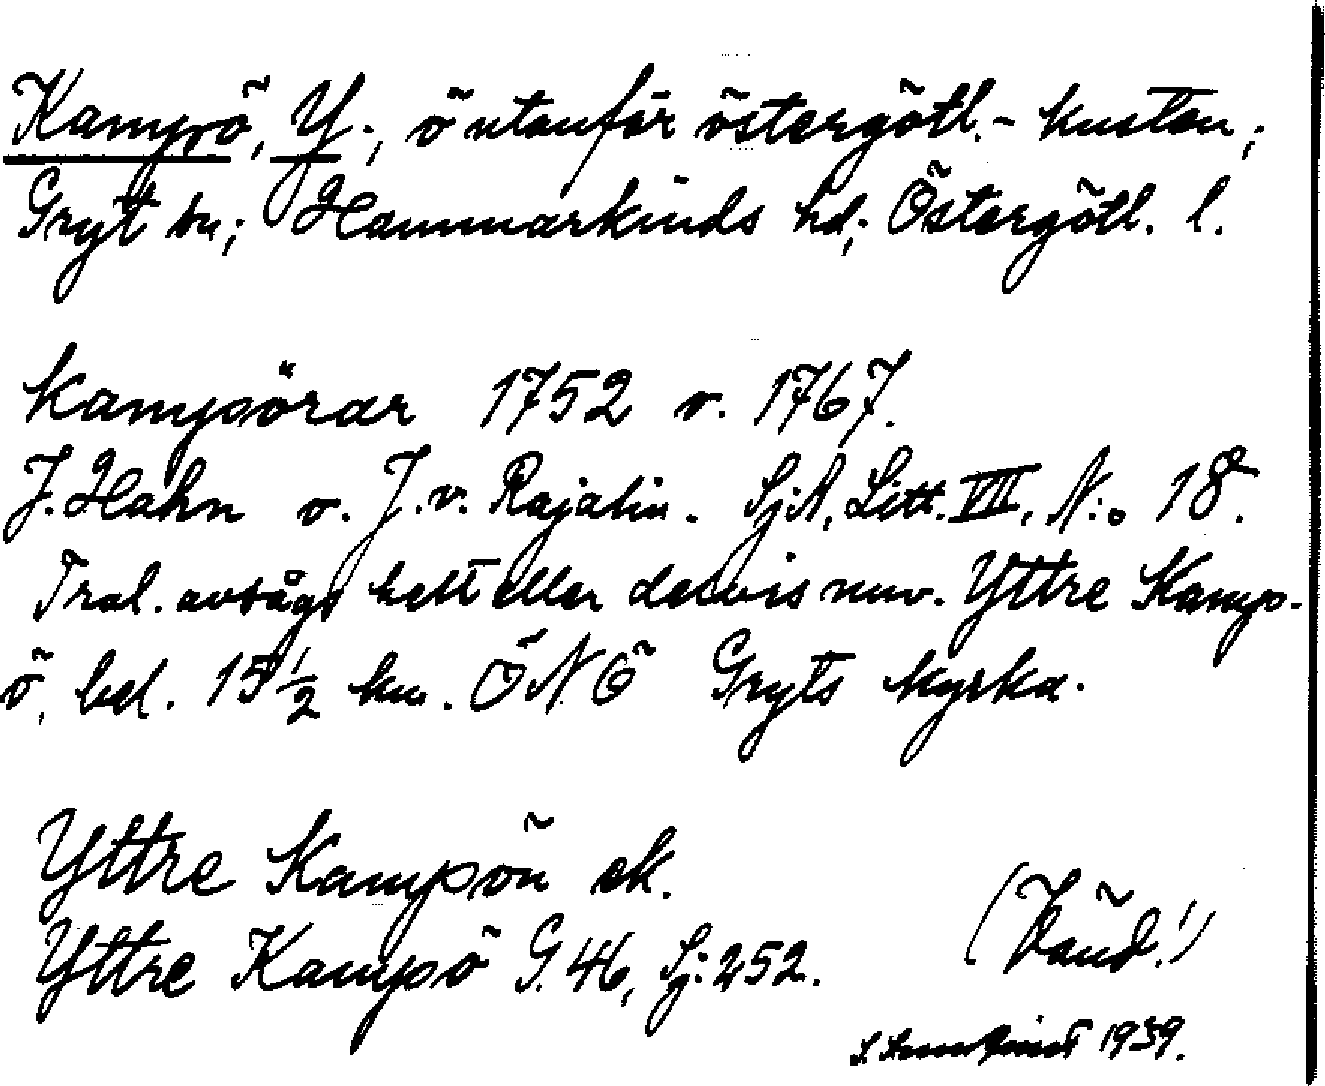 Kampö, Y., ö utanför östergötl.-kusten;
Gryt sn; Hammarkinds hd; Östergötl. l.
Kampörar 1752 o. 1767.
J. Hahn o. J. v. Rajalin. SjA, Litt. VII, N:o 18.
Trol. avsågs helt eller delvis nuv. Yttre Kamp-
ö, bel. 15 1/2 km. ÖNÖ Gryts kyrka.
Yttre Kampön ek.
Yttre Kampö G. 46, Sj: 252.
(Vänd!)
1939.